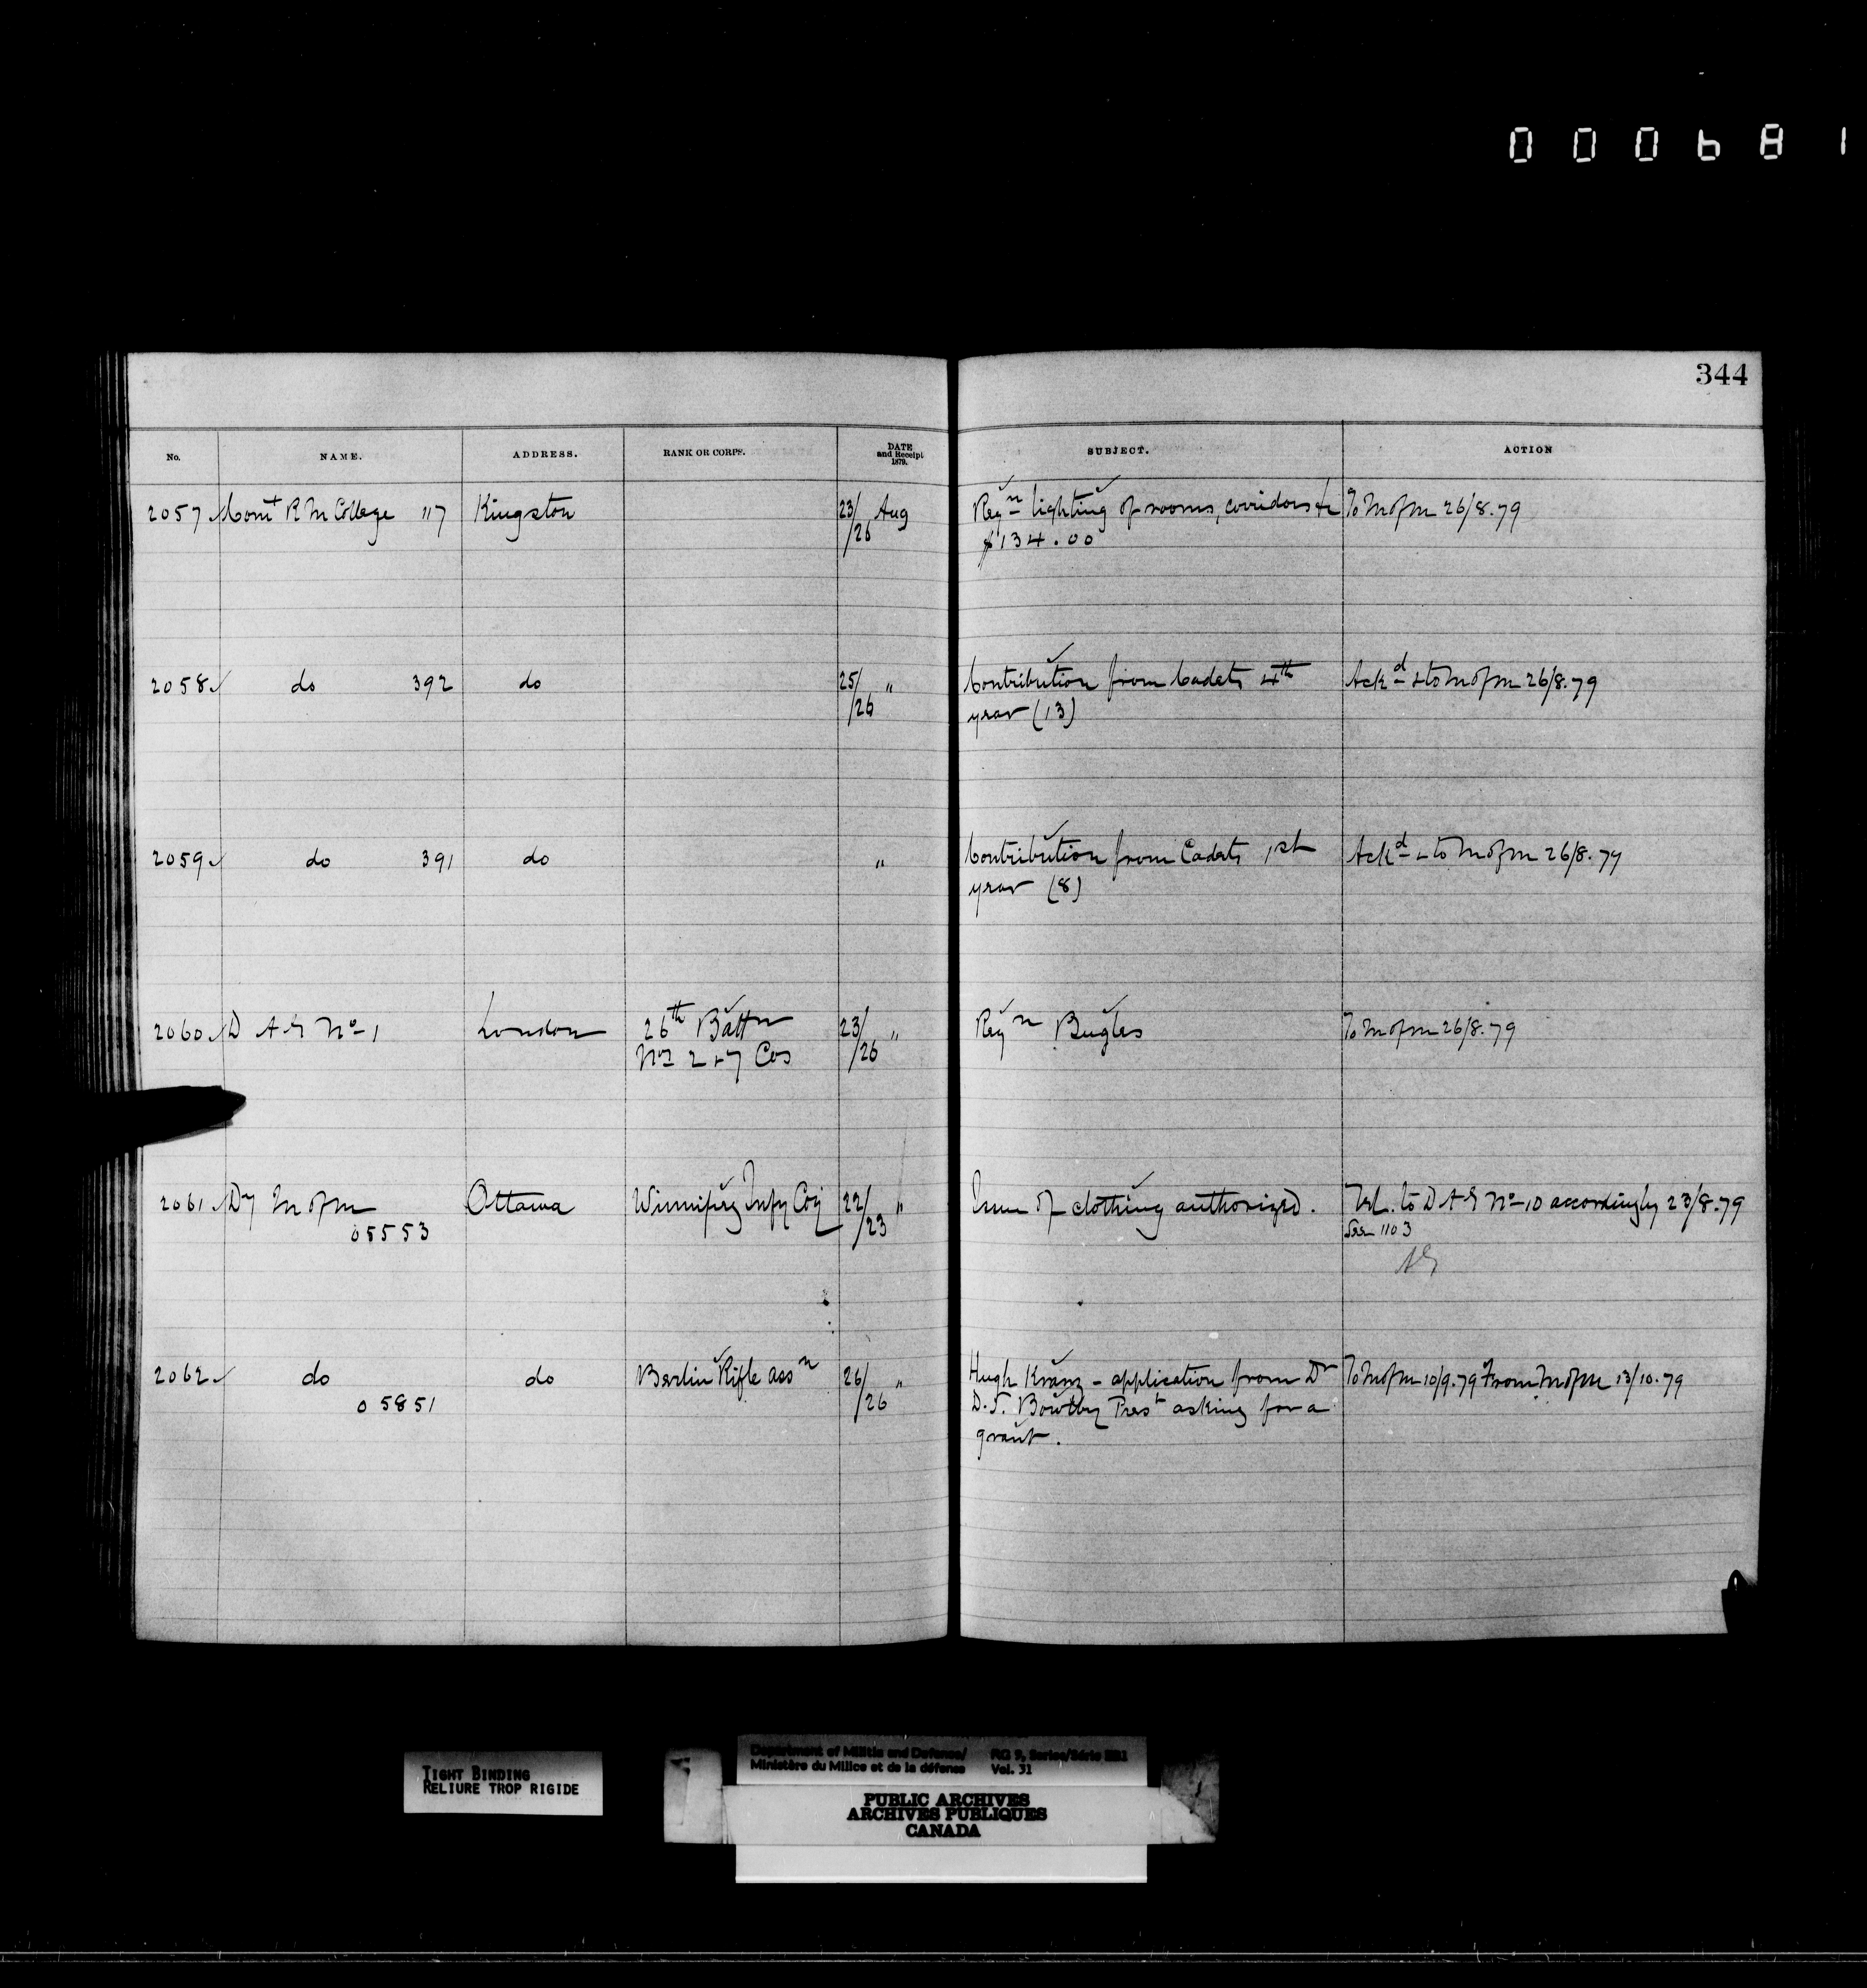 000681
344
No. NAME. ADDRESS. RANK OR CORPS. DATE and Receipt 1879. SUBJECT. ACTION
2057 Comt R M College 117 Kingston 23/26 Aug Reqn lighting of rooms, corridors &c To M of M 26/8.79
$134.00
2058 do 392 do 25/26 " Contribution from Cadets 4th Ackd & to M of M 26/8.79
year (13)
2059 do 391 do " Contribution from Cadets 1st Ackd & to M of M 26/8.79
year (8)
2060 D A G No 1 London 26th Battn 23/26 " Reqn Bugles To M of M 26/8.79
Nos 2 & 7 Cos
2061 Dy M of M Ottawa Winnipeg Infy Coy 22/23 " Issue of clothing authorized. Tel. to D A G No 10 accordingly 23/8.79
05553 See 1103
AG
2062 do do Berlin Rifle assn 26/26 " Hugh Kranz - application from Dr To M of M 10/9.79 From M of M 13/10.79
05851 D.S. Bowlby Prest asking for a
grant.
TIGHT BINDING
RELIURE TROP RIGIDE
Department of Militia and Defense/ RG 9, Series/Série IIB1
Ministère du Milice et de la défense Vol. 31
PUBLIC ARCHIVES
ARCHIVES PUBLIQUES
CANADA